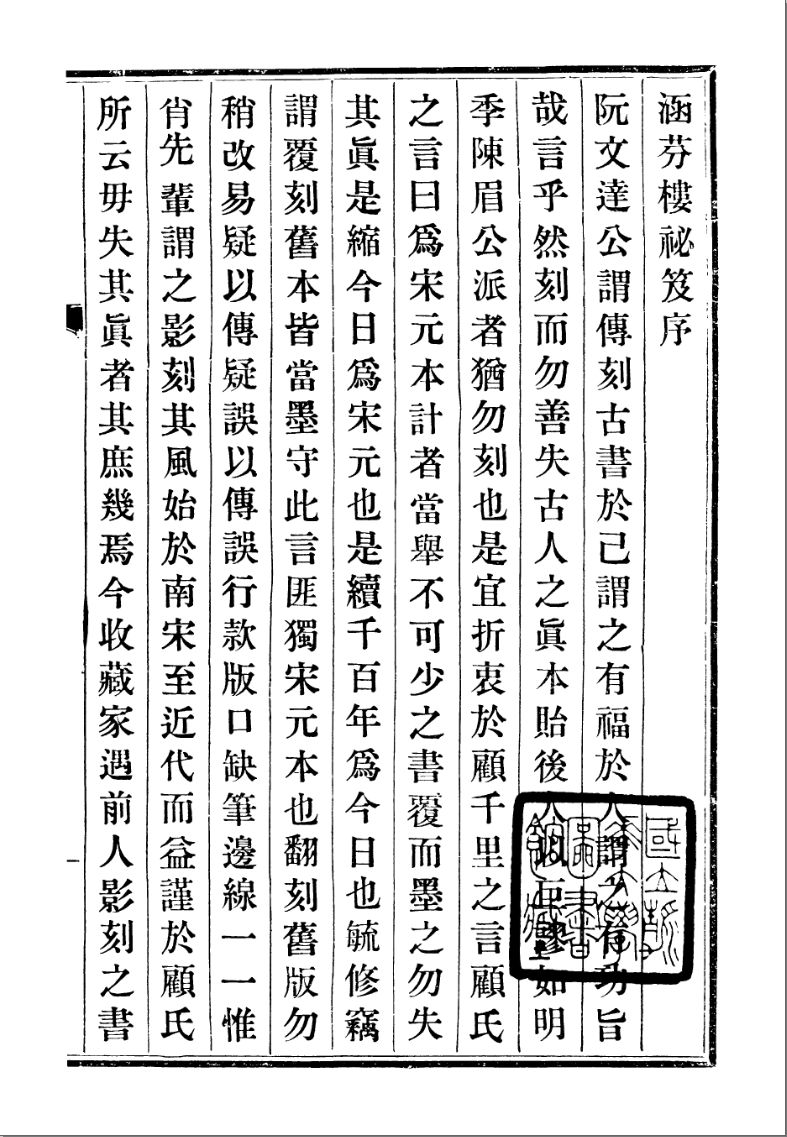 涵芬樓祕笈序
阮文達公謂傳刻古書於己謂之有福於人謂之有功旨
哉言乎然刻而勿善失古人之眞本貽後人以巨謬如明
季陳眉公派者猶勿刻也是宜折衷於顧千里之言顧氏
之言曰爲宋元本計者當舉不可少之書覆而墨之勿失
其眞是縮今日爲宋元也是續千百年爲今日也毓修竊
謂覆刻舊本皆當墨守此言匪獨宋元本也翻刻舊版勿
稍改易疑以傳疑誤以傳誤行款版口缺筆邊線一一惟
肖先輩謂之影刻其風始於南宋至近代而益謹於顧氏
所云毋失其眞者其庶幾焉今收藏家遇前人影刻之書